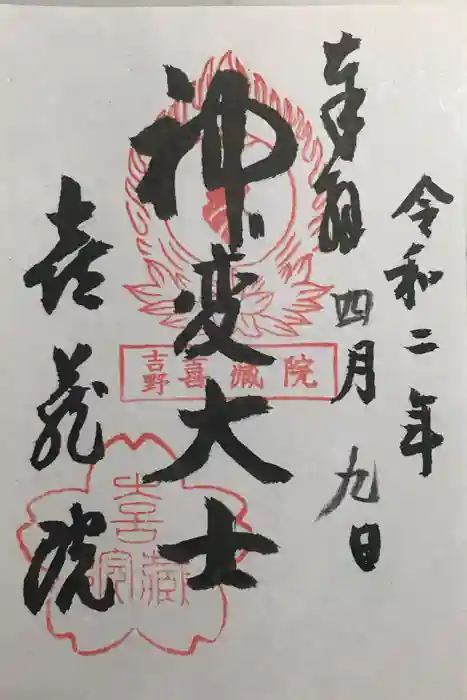 令和二年
奉拝 四月 九日
神変大士
喜蔵院
吉野 喜蔵院
喜蔵院